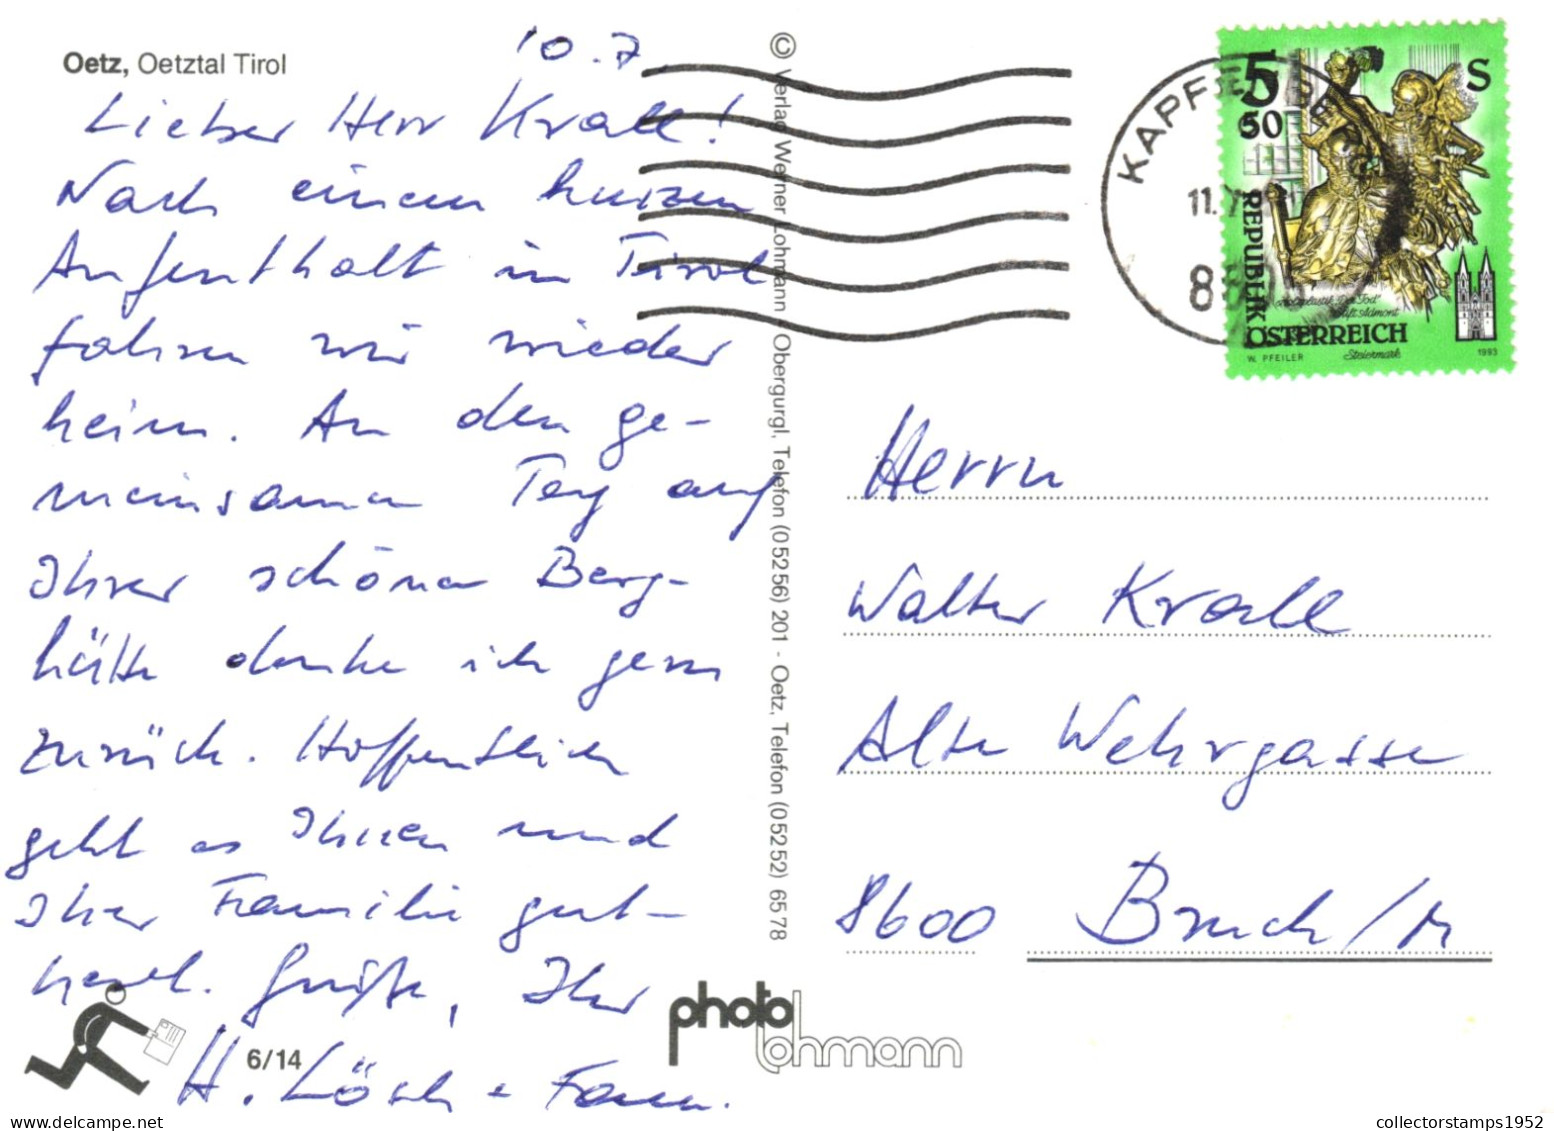 Oetz, Oetztal Tirol
10.7.
Lieber Herr Krall!
Nach einem kurzen
Aufenthalt in Tirol
fahren wir wieder
heim. An den ge-
meinsamen Tag auf
Ihrer schönen Berg-
hütte denke ich gern
zurück. Hoffentlich
geht es Ihnen und
Ihrer Familie gut –
herzl. Grüße, Ihr
H. Lösch + Fam.
6/14
© Verlag Werner Lohmann Obergurgl, Telefon (05256) 201 - Oetz, Telefon (05252) 6578
photo lohmann
KAPFENBERG
11.7
5 S
50
REPUBLIK
ÖSTERREICH
Stift Admont
Steiermark
W. PFEILER
1993
Herrn
Walter Krall
Alte Wehrgasse
8600 Bruck/M
delcampe.net
collectorstamps1952